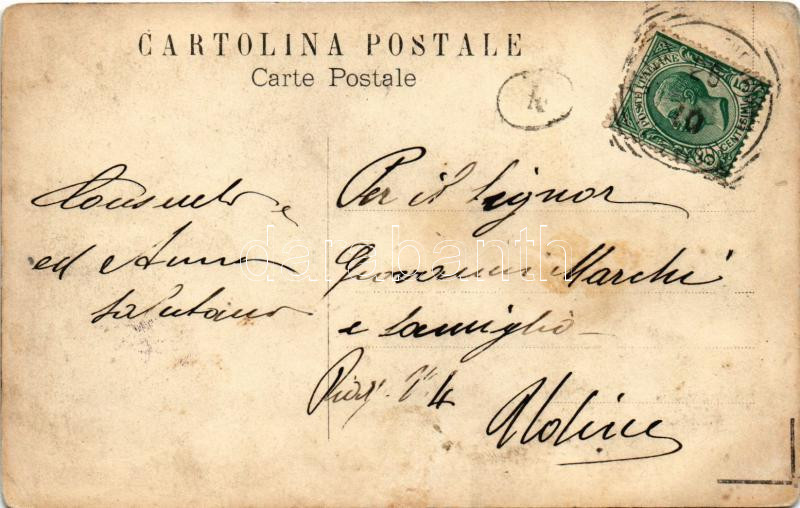 CARTOLINA POSTALE
Carte Postale
4
POSTE ITALIANE
CENTESIMI 5
25
10
Consuelo e
ed Anna
salutano
Per il Signor
Giovanni Marchi
e famiglia
4
Udine
darabanth